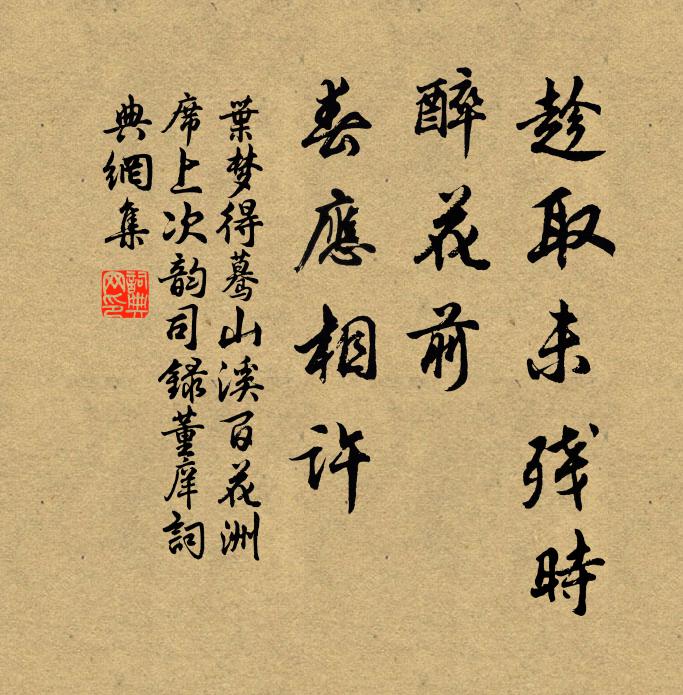 趁取未残時
醉花前
春應相許
葉梦得驀山溪百花洲
席上次韵司録董庠詞
典網集
詞典网印